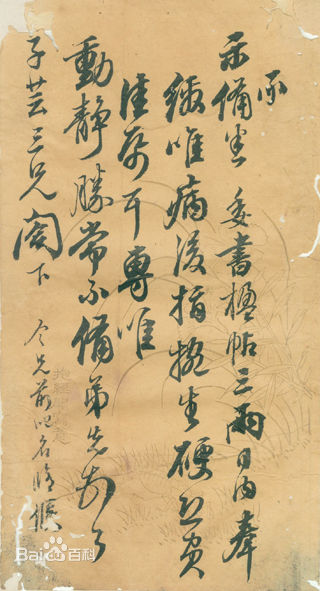 承
示備悉 委書楹帖三兩日內奉
繳唯病後指掔生硬恐負
佳帋耳專唯
動靜勝常不備弟先
子芸三兄閣下 令兄前叱名候
Bai百科